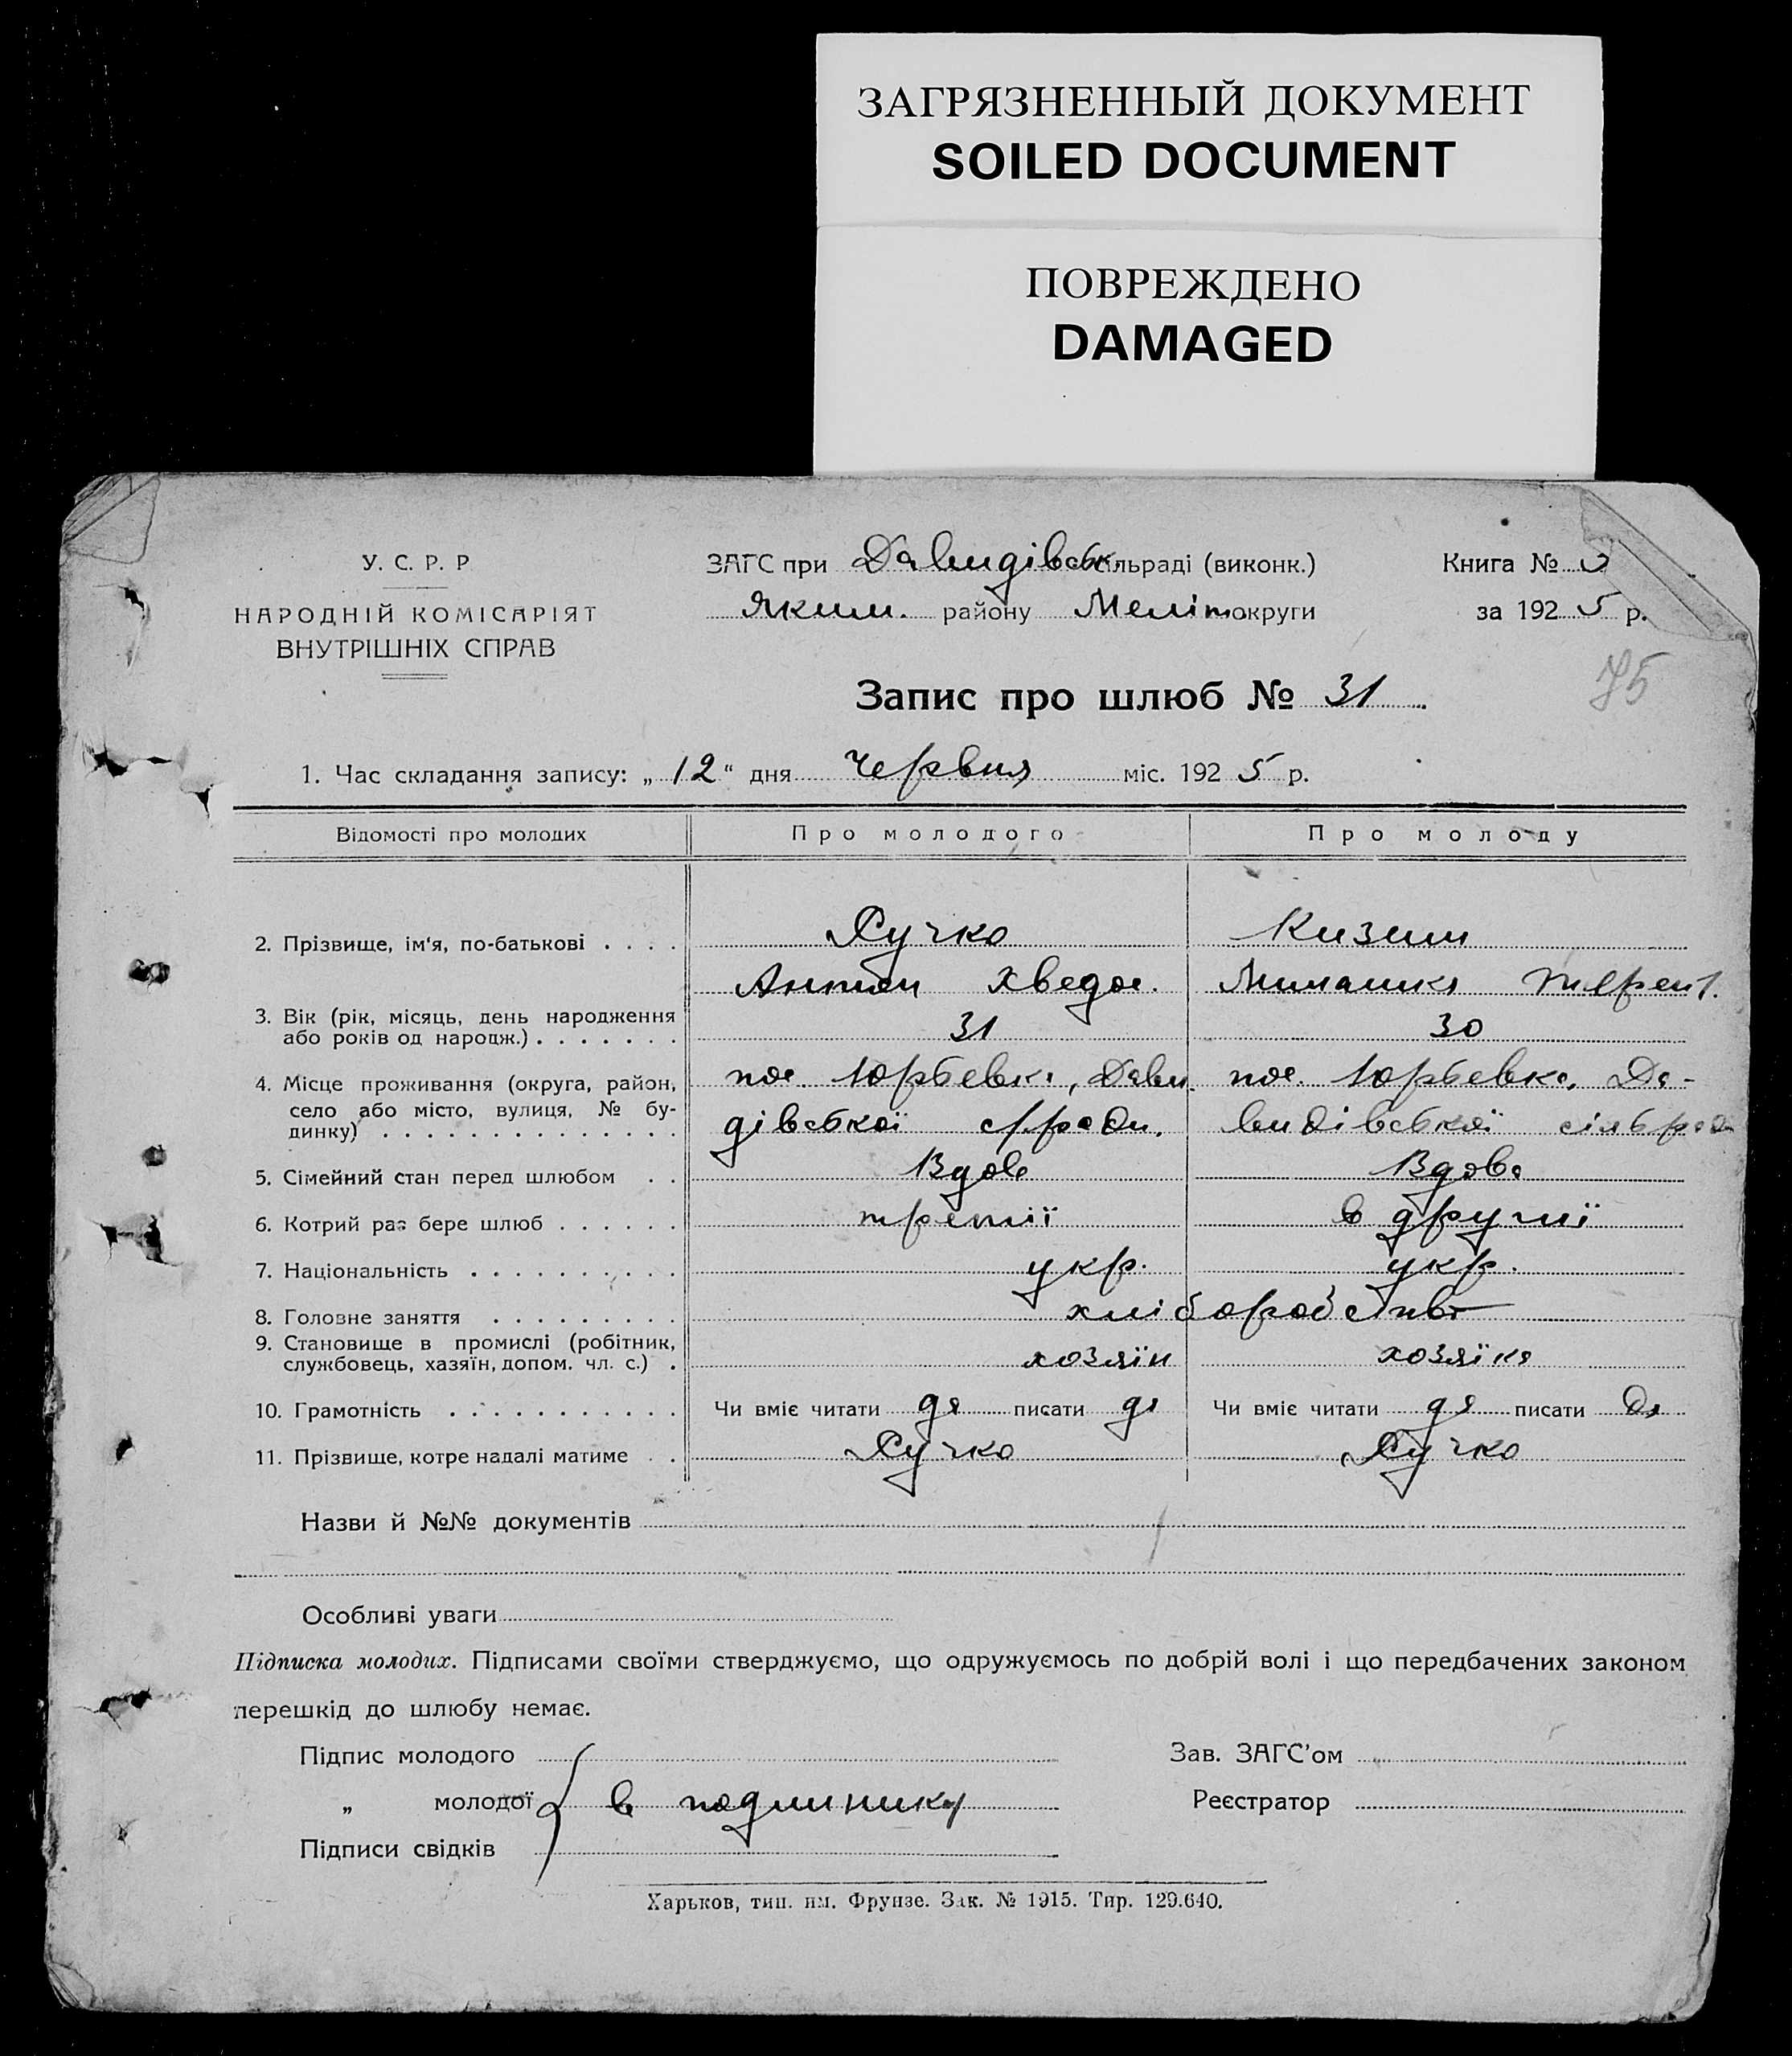 ЗАГРЯЗНЕННЫЙ ДОКУМЕНТ
SOILED DOCUMENT
ПОВРЕЖДЕНО
DAMAGED
У. С. Р. Р
НАРОДНІЙ КОМІСАРІЯТ
ВНУТРІШНІХ СПРАВ
ЗАГС при Давидівськ. сільраді (виконк.)
Яким. району Меліт. округи
Книга №
за 1925 р.
75
Запис про шлюб № 31
1. Час складання запису: „12“ дня Червня міс. 1925 р.
Відомості про молодих Про молодого Про молоду
2. Прізвище, ім'я, по-батькові . . . . Хучко Кизим
Антон Хведос. Терент.
3. Вік (рік, місяць, день народження
або років од народж.) . . . . . . . 31 30
4. Місце проживання (округа, район, пос. Юрьевка, Дави- пос. Юрьевка, Да-
село або місто, вулиця, № бу- дівської с/ради, видівської сільради
динку) . . . . . . . . . . . . . .
5. Сімейний стан перед шлюбом . . Вдов Вдова
6. Котрий раз бере шлюб . . . . . . третій в другиї
7. Національність . . . . . . . . . . укр. укр.
8. Головне заняття . . . . . . . . . хліборобство
9. Становище в промислі (робітник,
службовець, хазяїн, допом. чл. с.) . хозяїн хозяїка
10. Грамотність . . . . . . . . . . . Чи вміє читати да писати да Чи вміє читати да писати да
11. Прізвище, котре надалі матиме . . Хучко Хучко
Назви й №№ документів
Особливі уваги
Підписка молодих. Підписами своїми стверджуємо, що одружуємось по добрій волі і що передбачених законом
перешкід до шлюбу немає.
Підпис молодого Зав. ЗАГС'ом
„ молодої в подлинику Реєстратор
Підписи свідків
Харьков, тип. им. Фрунзе. Зак. № 1915. Тир. 129.640.